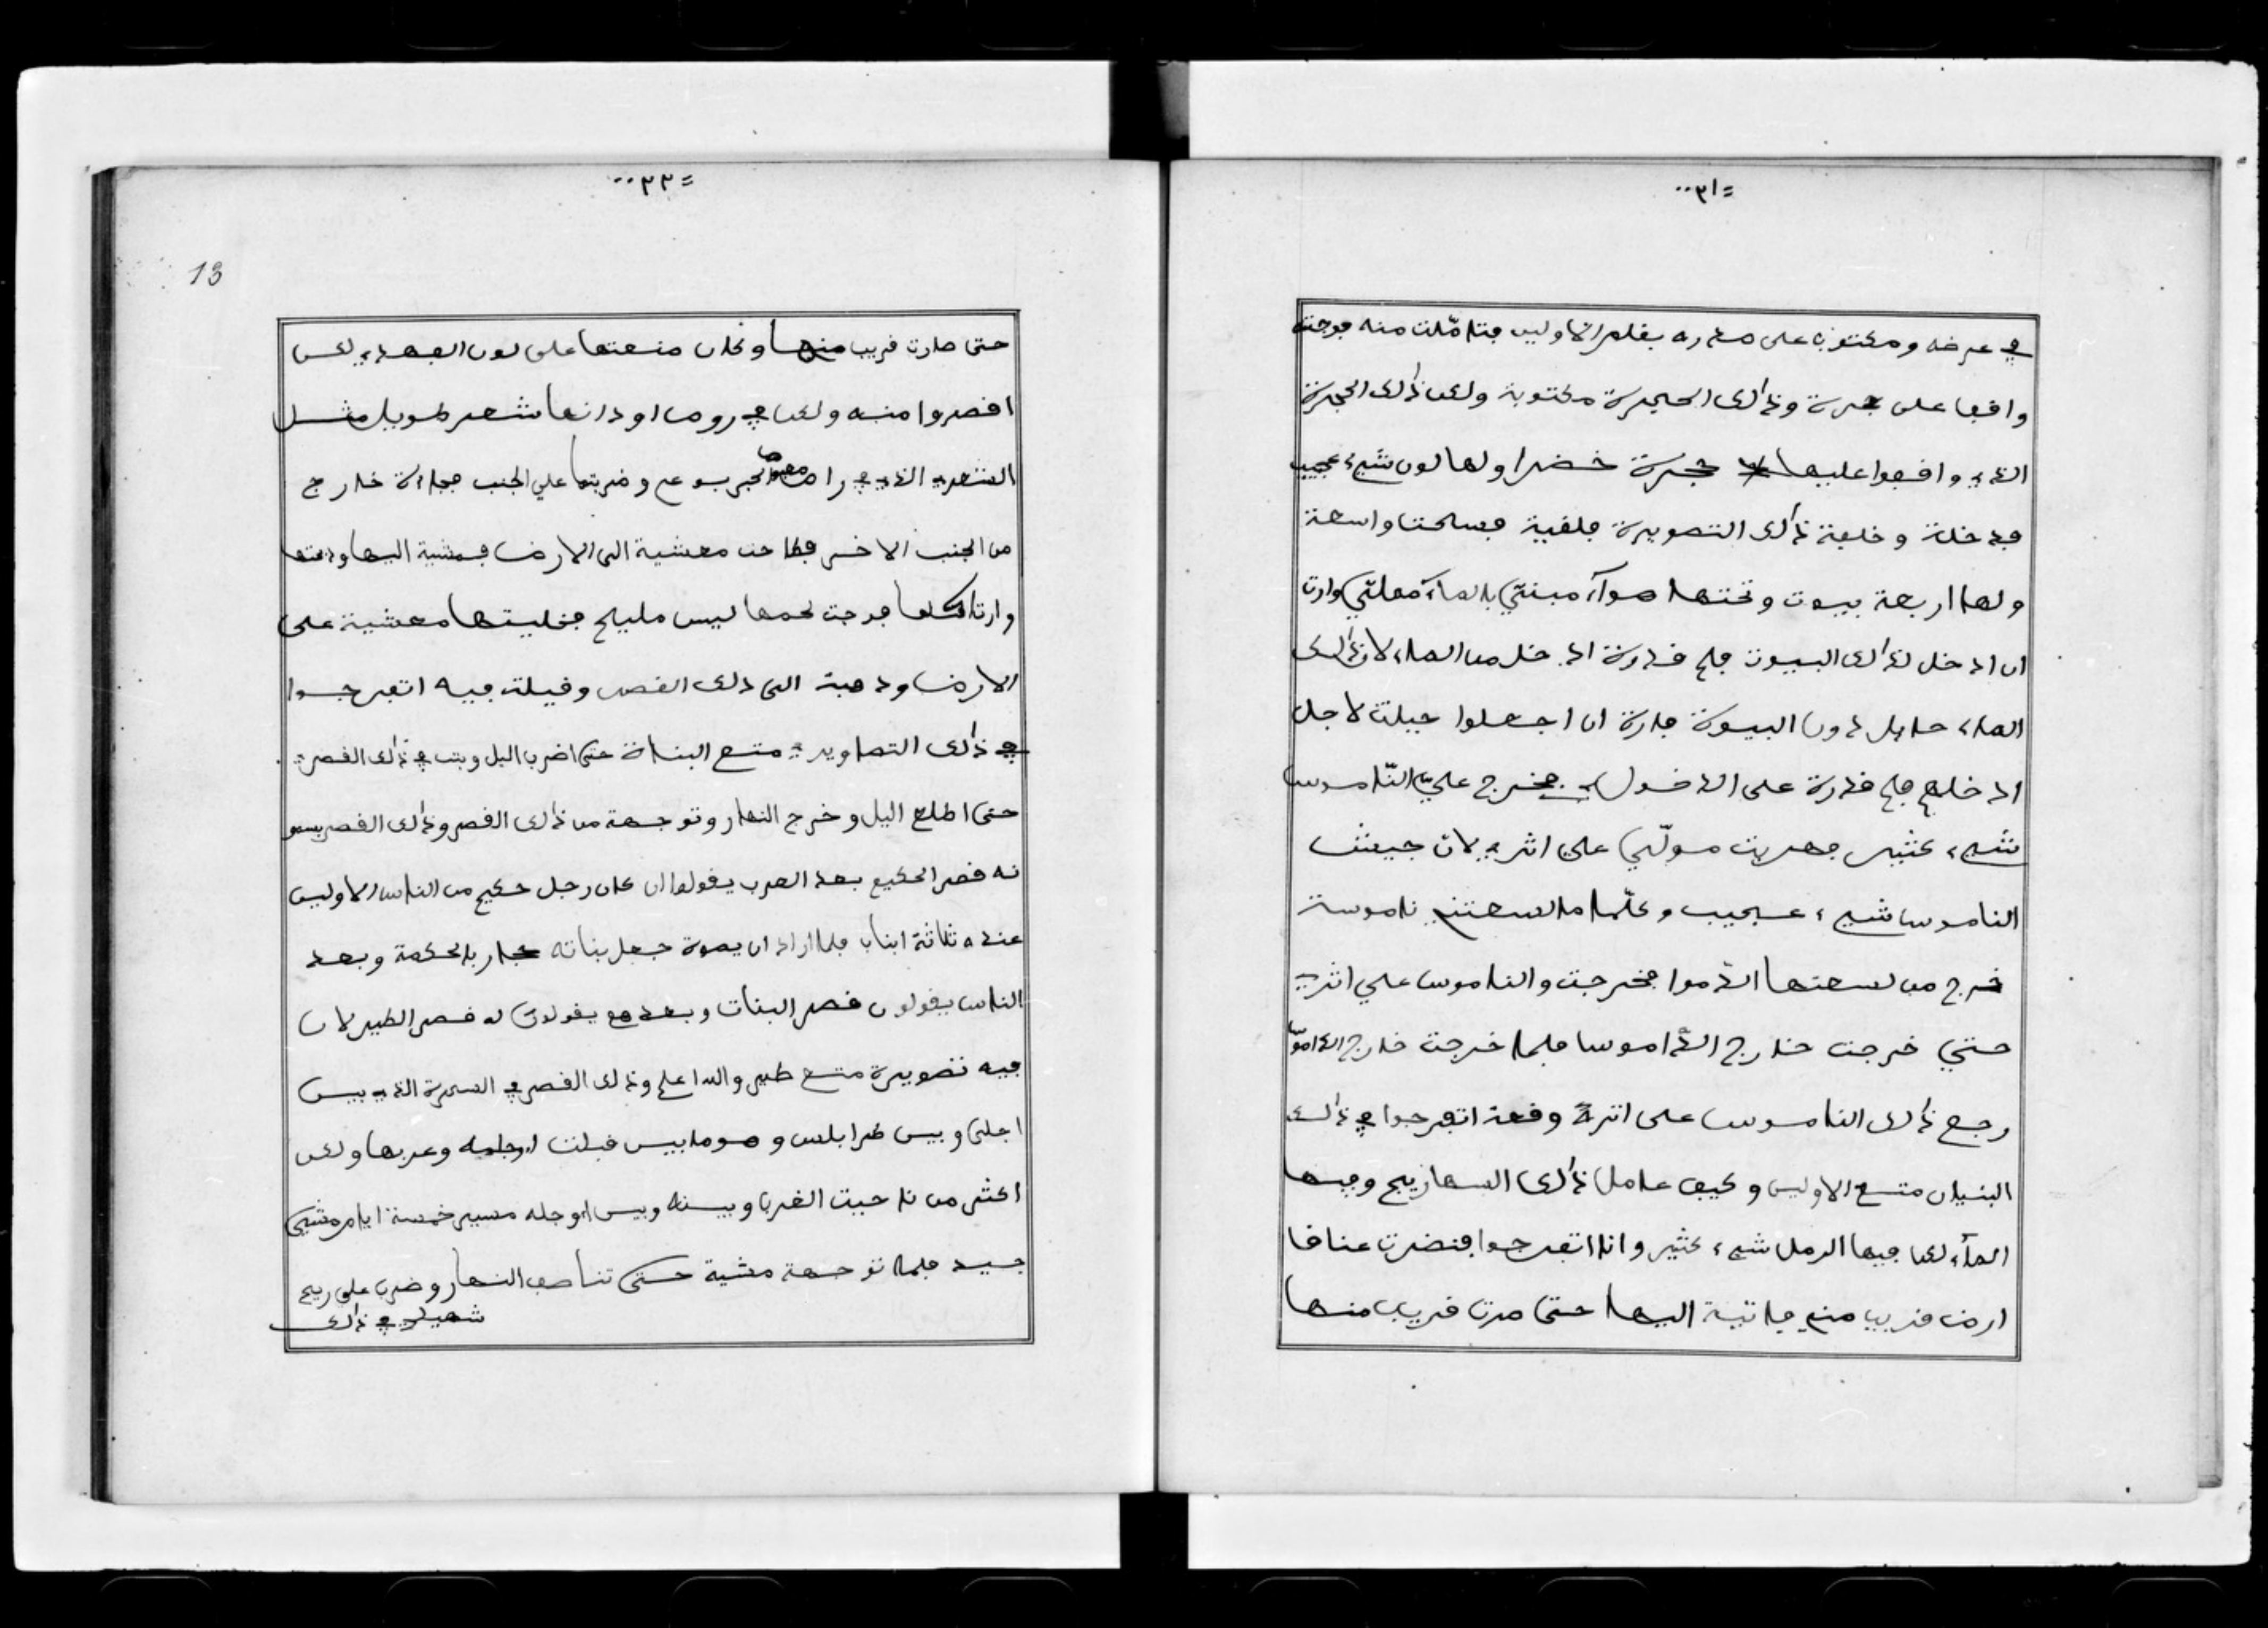 =٢١..
في عرضه ومكتوب على صدره بقلم الاولين فتاملت منه فوجدته
واقفا على حجرة وذالك الحجرة مكتوبة ولكن ذالك الحجرة
الذي واقفوا عليها حجرة خضرا ولها لون شيء عجيب
فدخلت وخلفة ذالك التصويرة فلقية فسحتا واسعة
ولها اربعة بيوت وتحتها هواء مبنتي بالماء معلتي وارت
ان ادخل لذالك البيوت فلم قدرت ادخل من الماء لان ذالك
الماء حايل دون البيوت فارة ان اجعلوا حيلت لاجل
ادخلهم فلم قدرة على الدخول فخرج عليّ النّاموس
شيء كثير فهربت مولّي علي اثري لان جيش
الناموس شيء عجيب وكلّما لسعتني ناموسة
خرج من لسعتها الدموا فخرجت والناموس علي اثري
حتي خرجت خارج الداموسا فلما خرجت خارج الداموس
رجع ذالك الناموس على اثره وقعد اتفرجوا في ذالك
البنيان متع الاولين وكيف عامل ذالك السهاريج وفيها
الماء لكن فيها الرمل شيء كثير وانا اتفرجوا فنضرت عناقا
ارض قريب مني فاتية اليها حتى صرت قريب منها
=٢٢..
13
حتى صارت قريب منها وكان صنعتها على لون الفهد لكن
اقصروا منه ولكن في روس اوذانها شعر طويل مثل
الشعر الذي في راس معزة الحجر بوعم وضربتها علي الجنب فجازة خارج
من الجنب الاخر فطاحت معشية الى الارض فمشية اليها وذبحتها
وارت اكلها فوجدت لحمها ليس مليح فخليتها معشية على
الارض وذهبت الى ذلك القصر وقيلت فيه اتفرجوا
في ذالك التصاوير متع البناة حتى اضرب اليل وبت في ذالك القصر
حتى اطلع اليل وخرج النهار وتوجهة من ذالك القصر وذالك القصر يسمو
نه قصر الحكيم بعد العرب يقولوا ان كان رجل حكيم من الناس الاولين
عنده ثلاثة ابنات فلما اراد ان يموة جعل بناته حجار بالحكمة وبعد
الناس يقولون قصر البنات وبعدهم يقولون له قصر الطير لان
فيه تصويرة متع طير والله اعلم وذالك القصر في السحرة الذي بين
اجلى وبين طرابلس وهو ما بين قبلت اوجله وعربها ولكن
اكثر من ناحيت الغرب وبينه وبين اوجله مسير خمسة ايام مشي
جيد فلما توجهة مشية حتى تناصف النهار وضرب على ريح
شهيلي في ذالك